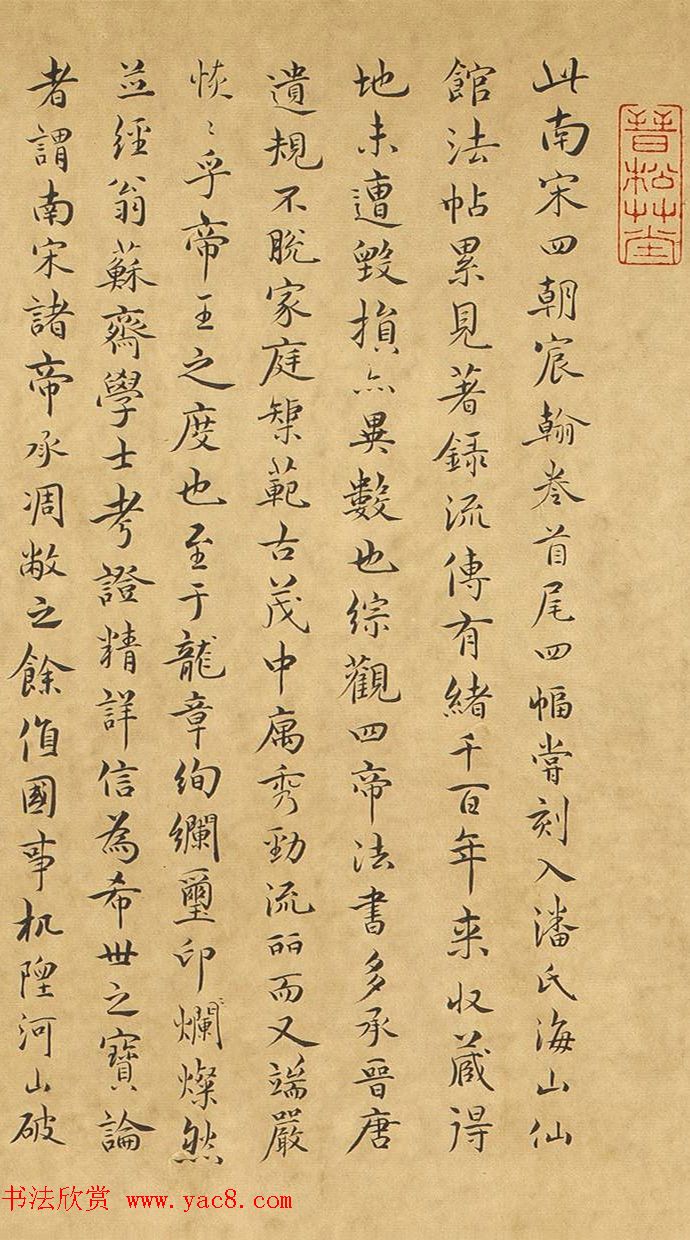 晉松草堂
此南宋四朝宸翰卷首尾四幅嘗刻入潘氏海山仙
館法帖累見著錄流傳有緒千百年来收藏得
地未遭毀損亦異數也綜觀四帝法書多承晉唐
遺規不脫家庭榘範古茂中寓秀勁流丽而又端嚴
恢〻乎帝王之度也至于龍章絢斕璽印爛燦然
並經翁蘇齋學士考證精詳信為希世之寶論
者謂南宋諸帝承凋敝之餘值國事杌隉河山破
书法欣赏 www.yac8.com